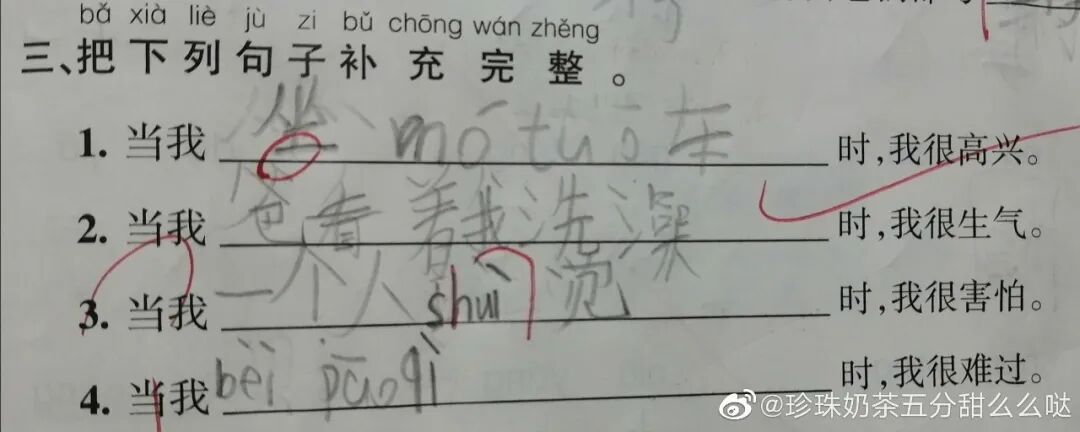 bǎ xià liè jù zi bǔ chōng wán zhěng
三、把下列句子补充完整。
1. 当我 坐 mó tuō 车 时,我很高兴。
2. 当我 爸看着我洗澡 时,我很生气。
3. 当我 一个人 shuì 觉 时,我很害怕。
4. 当我 bèi pāo qì 时,我很难过。
@珍珠奶茶五分甜么么哒